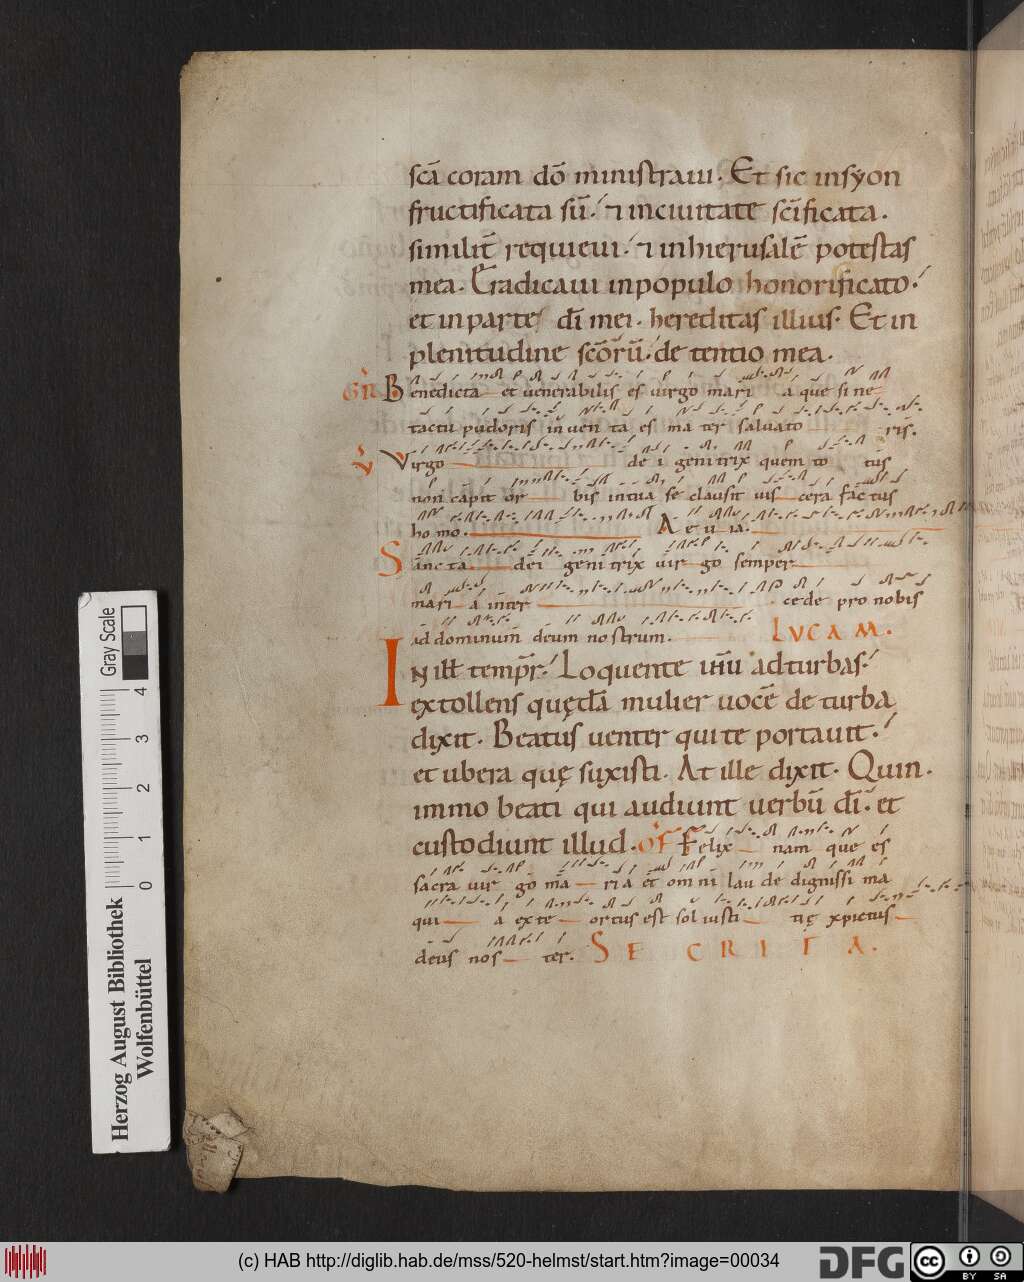 scā coram dō ministraui. Et sic insyon
fructificata sū. ⁊ inciuitate scīficata.
similit̄ requieui. ⁊ inhierusalē potestas
mea. Eradicaui inpopulo honorificato.
et inparte dī mei. hereditas illius. Et in
plenitudine scōrū. de tentio mea.
GR̄ Benedicta et uenerabilis es uirgo mari a que sine
tactu pudoris inuen ta es ma ter saluato ris.
V̄ Virgo de i genitrix quem to tus
non capit or bis intua se clausit uis cera factus
homo. A e u ia.
Sancta dei genitrix uir go semper
mari a inter cede pro nobis
ad dominum deum nostrum. LVCAM.
IN ill̄ tempr̄. Loquente ih̄u adturbas.
extollens quędā mulier uocē de turba
dixit. Beatus uenter qui te portauit.
et ubera quę suxisti. At ille dixit. Quin.
immo beati qui audiunt uerbū dī. et
custodiunt illud. OF Felix nam que es
sacra uir go ma ria et omni lau de dignissi ma
qui a exte ortus est sol iusti tię xpictus
deus nos ter. SECRITA.
Herzog August Bibliothek
Wolfenbüttel
0 1 2 3 4
Gray Scale
(c) HAB http://diglib.hab.de/mss/520-helmst/start.htm?image=00034
DFG
cc BY SA